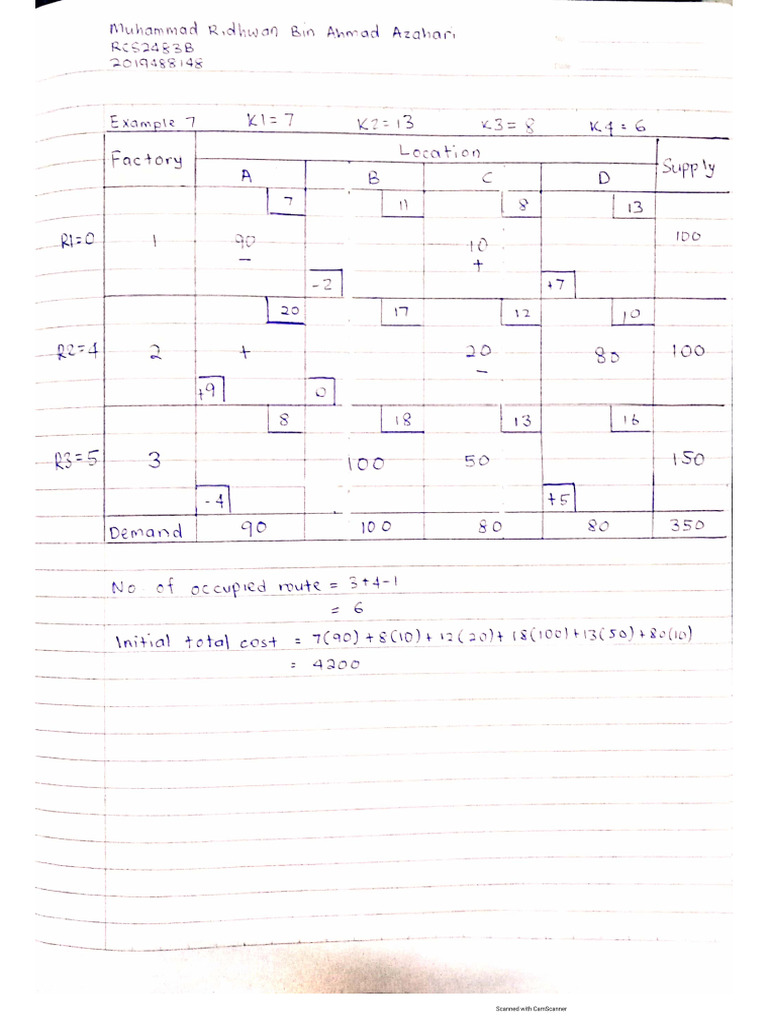 Muhammad Ridhwan Bin Ahmad Azahari
RCS2483B
2019488148
Example 7 K1=7 K2=13 K3=8 K4=6
Factory Location Supply
A B C D
7 11 8 13
R1=0 1 90 10 100
− +
-2 +7
20 17 12 10
R2=4 2 + 20 80 100
−
+9 0
8 18 13 16
R3=5 3 100 50 150
-4 +5
Demand 90 100 80 80 350
No. of occupied route = 3+4-1
= 6
Initial total cost = 7(90)+8(10)+12(20)+18(100)+13(50)+80(10)
= 4200
Scanned with CamScanner